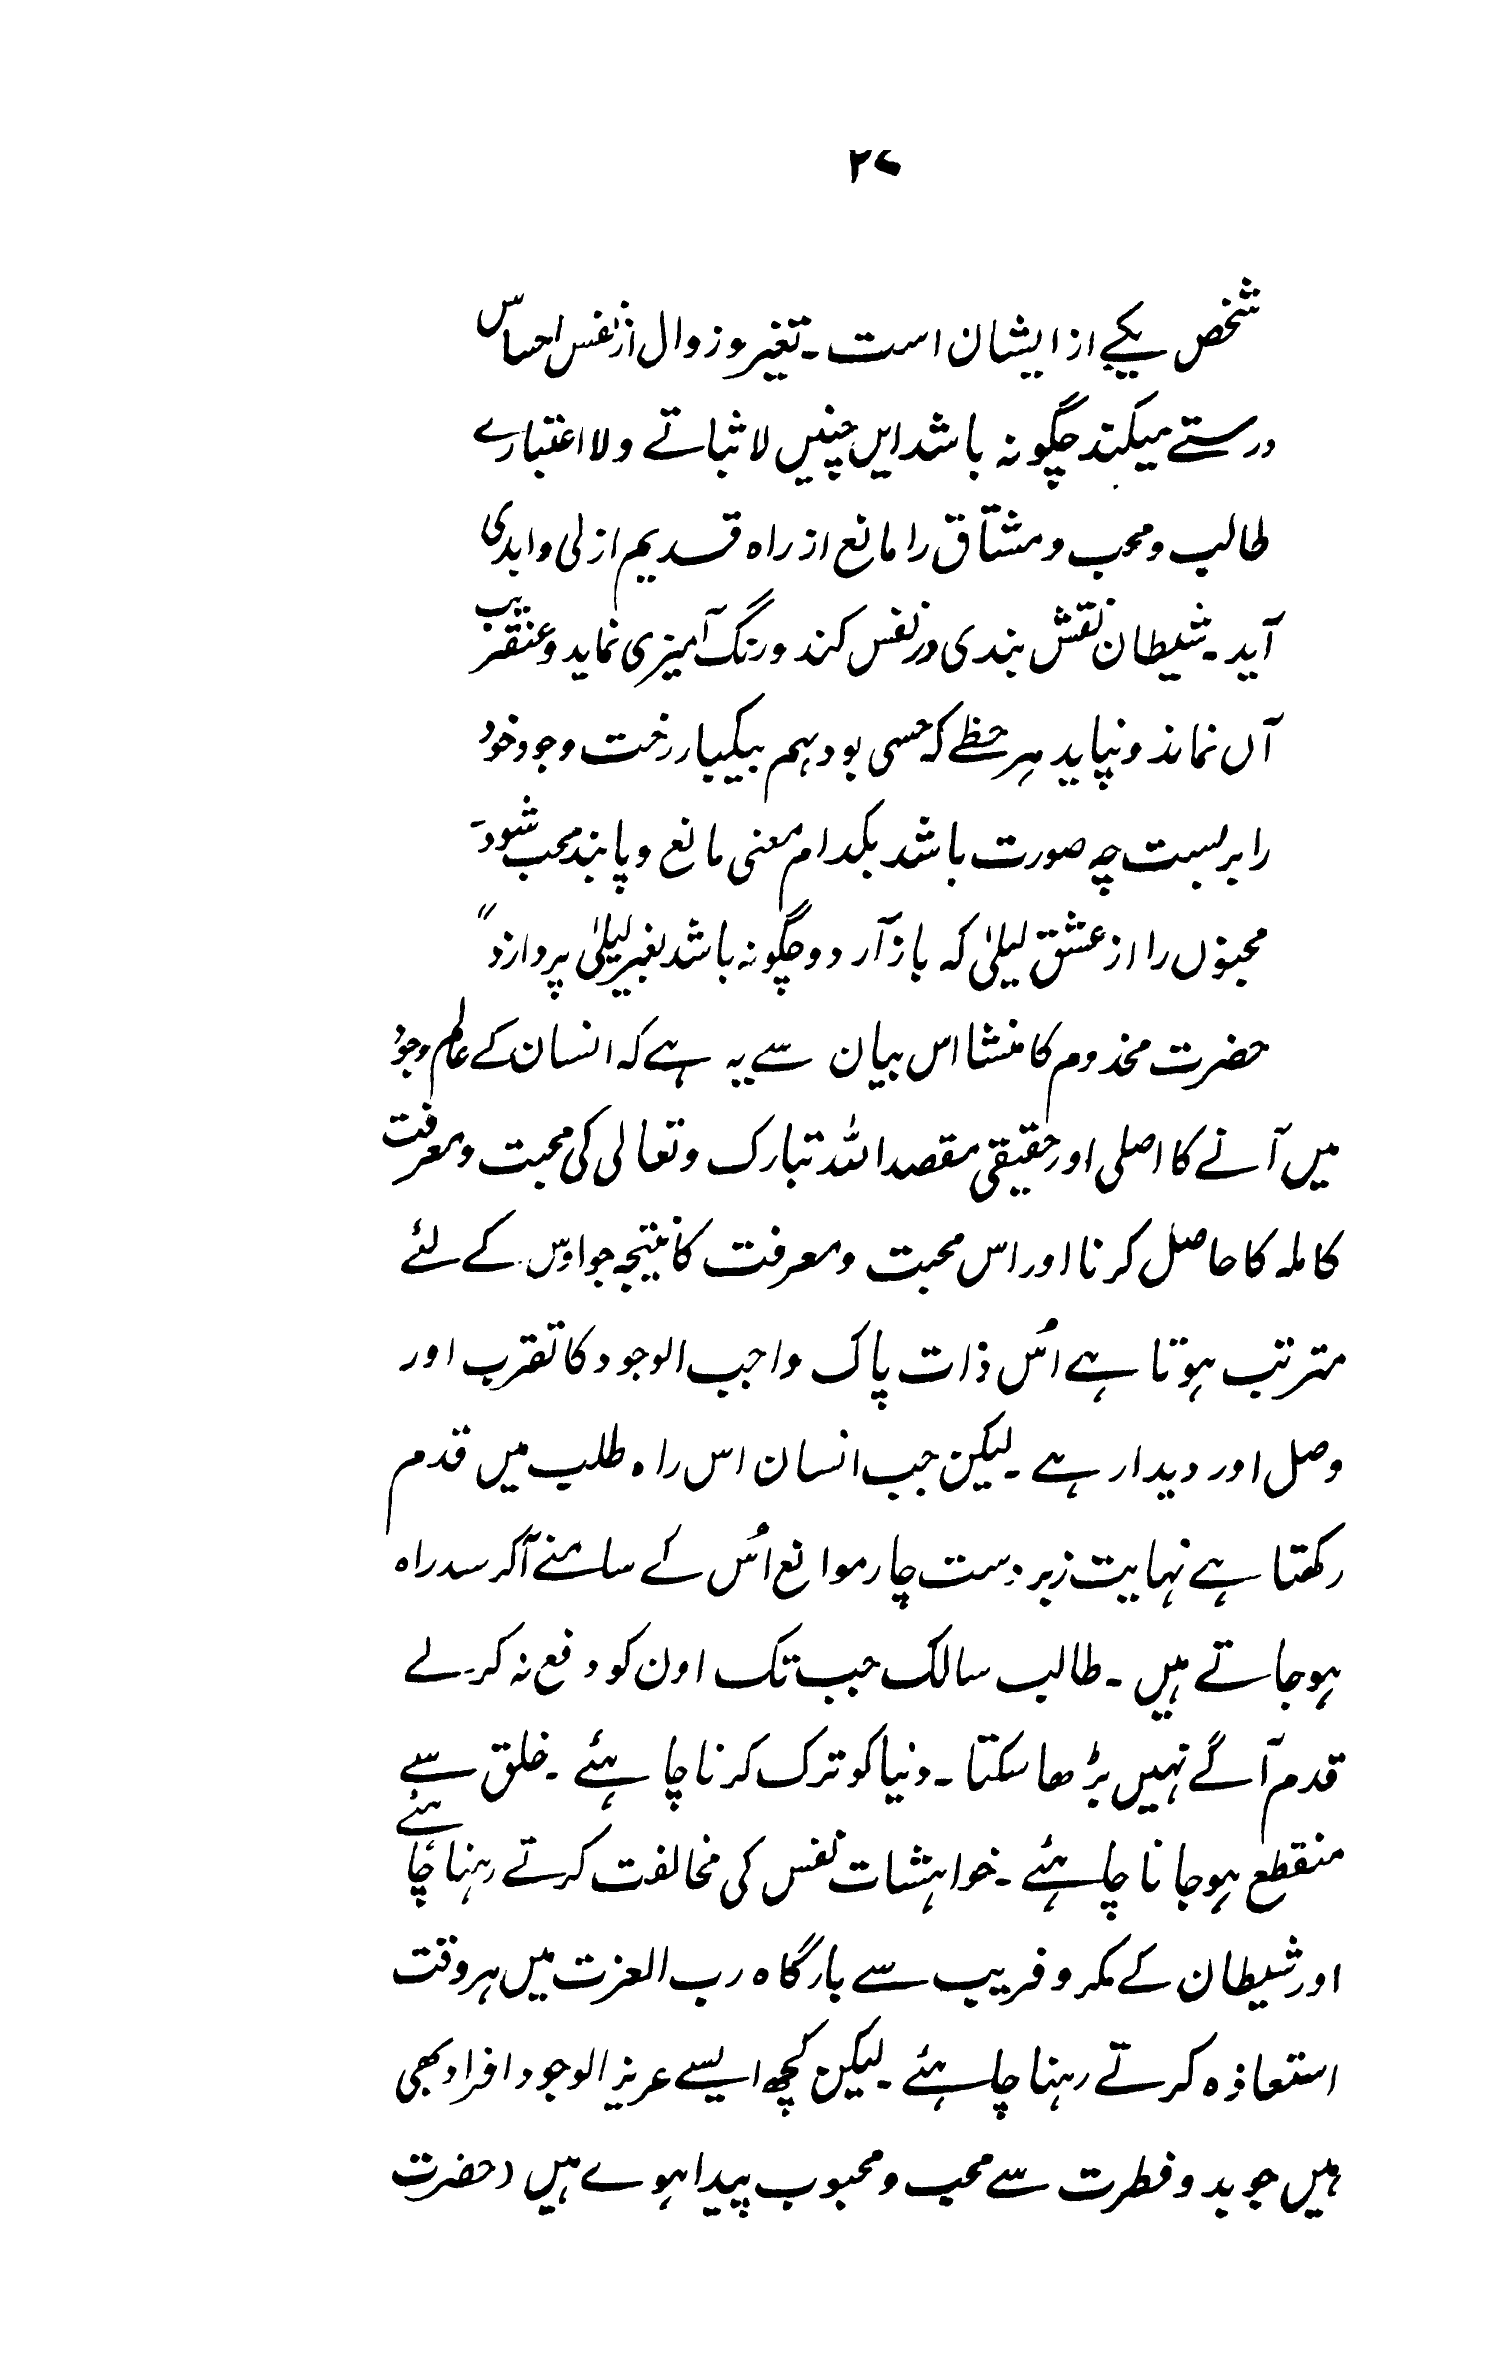 ۲۷
شخص یکے از ایشان است۔ تغیر و زوال از نفس احساس
درستے میکند چگونہ باشد ایں چنیں لا ثباتے و لا اعتبارے
طالب و محب و مشتاق را مانع از راہ قدیم ازلی و ابدی
آید۔ شیطان نقش بندی در نفس کند و رنگ آمیزی نماید و عنقریب
آں نماند و نپاید ہر حظے کہ حسی بود ہم بیکبار رخت وجود خود
را بربست چہ صورت باشد بکدام معنی مانع و پابند محب شود۔
مجنوں را از عشق لیلیٰ کہ باز آرد و چگونہ باشد بغیر لیلیٰ پردازد"
حضرت مخدوم کا منشا اس بیان سے یہ ہے کہ انسان کے عالم وجود
میں آنے کا اصلی اور حقیقی مقصد اللہ تبارک و تعالی کی محبت و معرفت
کاملہ کا حاصل کرنا اور اس محبت و معرفت کا نتیجہ جو اوس کے لئے
مترتب ہوتا ہے اُس ذات پاک واجب الوجود کا تقرب اور
وصل اور دیدار ہے۔ لیکن جب انسان اس راہ طلب میں قدم
رکھتا ہے نہایت زبردست چار موانع اُس کے سامنے آکر سدراہ
ہوجاتے ہیں۔ طالب سالک جب تک اون کو دفع نہ کرلے
قدم آگے نہیں بڑھا سکتا۔ دنیا کو ترک کرنا چاہئے۔ خلق سے
منقطع ہوجانا چاہئے۔ خواہشات نفس کی مخالفت کرتے رہنا چاہئے
اور شیطان کے مکر و فریب سے بارگاہ رب العزت میں ہر وقت
استعاذہ کرتے رہنا چاہئے۔ لیکن کچھ ایسے عریز الوجود افراد بھی
ہیں جو بدو فطرت سے محب و محبوب پیدا ہوے ہیں (حضرت